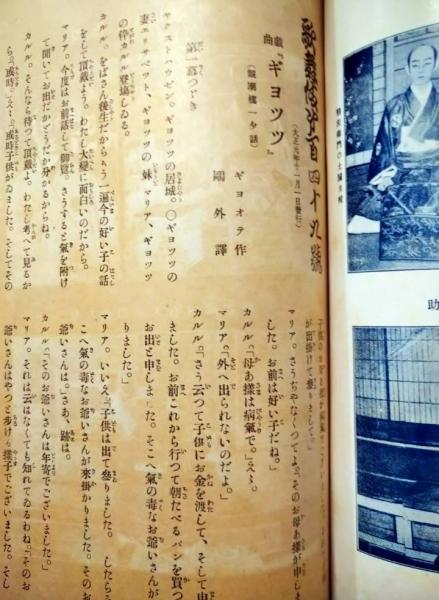 歌舞伎新報第百四十九號
(大正元年十一月一日發行)
戯曲『ギヨツツ』
(觀潮樓一夕話)
ギヨオテ作
鷗外譯
第一幕つゞき
ヤクストハウゼン。ギヨツツの居城。〇ギヨツツの
妻エリサベツト、ギヨツツの妹マリア、ギヨツツ
の倅カルル登場しゐる。
カルル。をばさん後生だからもう一遍今の好い子の話
をして頂戴よう。わたし大變に面白いのだから。
マリア。今度はお前話して御覽。さうすると氣を附け
て聞いてお出だかどうだか分かるからね。
カルル。そんなら待つて頂戴よ。わたし考へて見るか
ら。「或時。」えゝ。「或時子供がゐました。そしてその
マリア。さうぢやなくつてよ。「そのお母あ樣が申しま
した。お前は好い子だね。」
カルル。「母あ樣は病氣で。」えゝ。
マリア。「外へ出られないのだよ。」
カルル。「さう云つて子供にお金を渡して、そして申
ました。お前これから行つて朝たべるパンを買つ
お出と申しました。そこへ氣の毒なお爺いさんが
りました。」
マリア。いいえ。「子供は出て參りました。したらう
こへ氣の毒なお爺いさんが來掛かりました。そのお
爺いさんは。」さあ、跡は。
カルル。「そのお爺いさんは年寄でございました。」
マリア。それは云はなくても知れてゐるわね。「そのお
爺いさんはやつと歩ける樣子でございました。そし
助